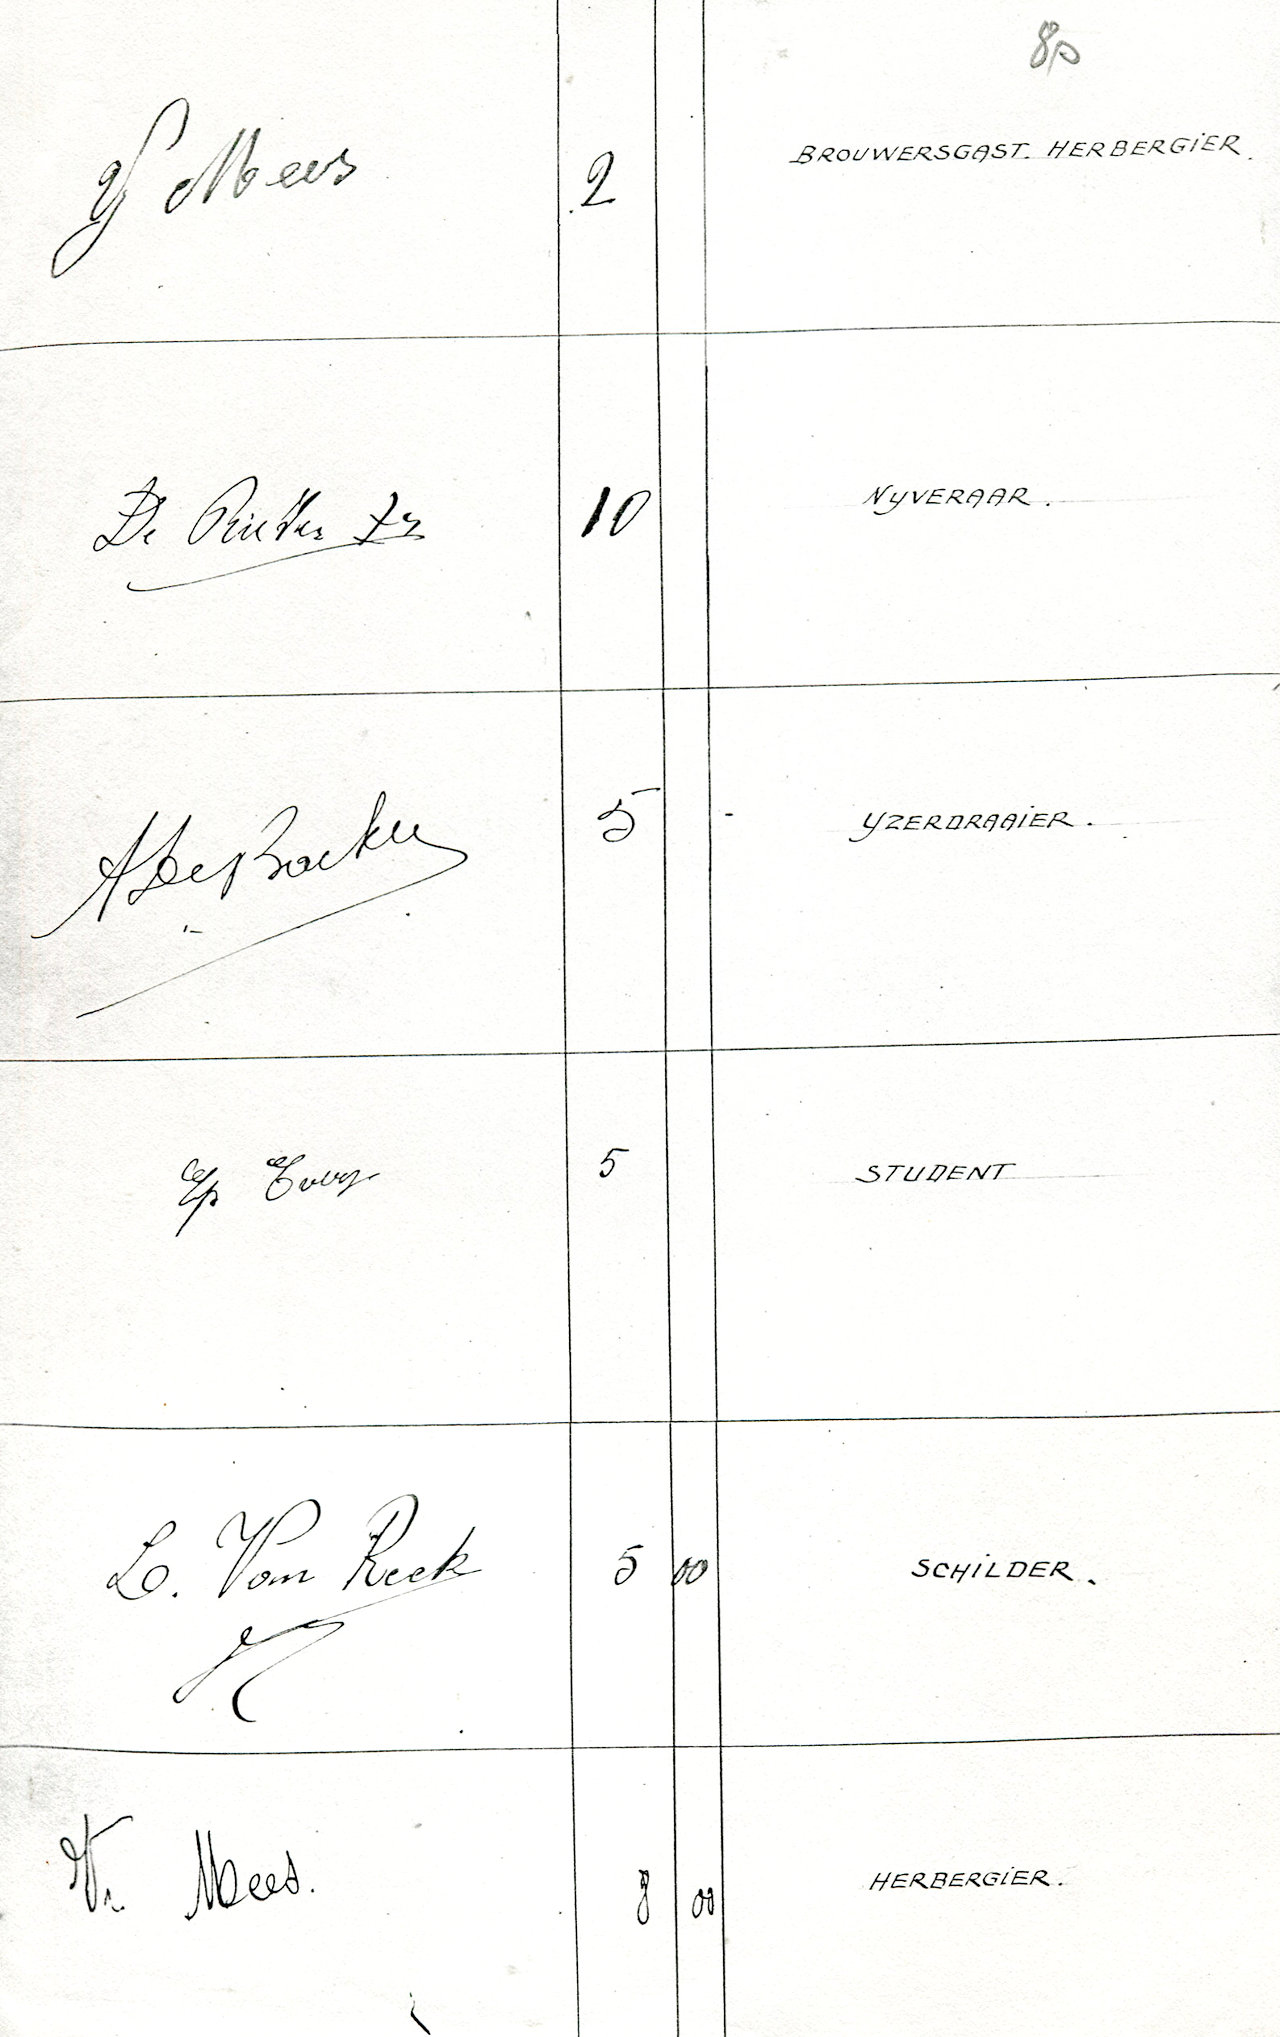 80
Mees 2 BROUWERSGAST. HERBERGIER.
De 10 NYVERAAR.
A De Backer 5 YZERDRAAIER.
5 STUDENT
L. Van Reek 5 00 SCHILDER.
Mees. 8 00 HERBERGIER.